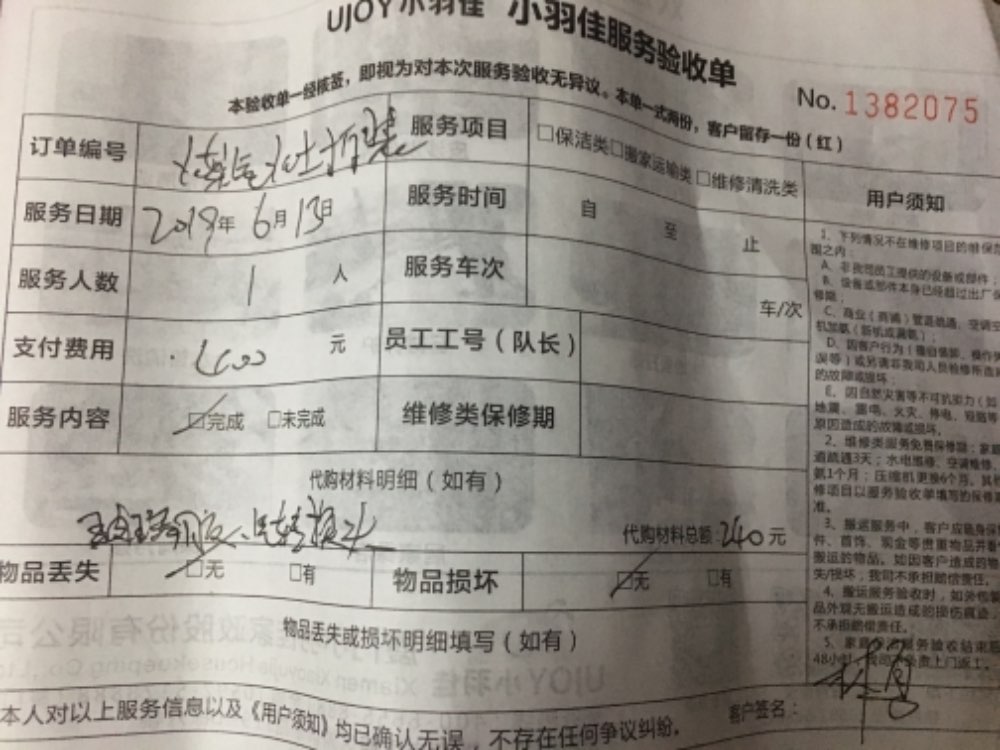 UJOY小羽佳 小羽佳服务验收单
本验收单一经核签，即视为对本次服务验收无异议。本单一式两份，客户留存一份（红）
No. 1382075
订单编号
服务项目 □保洁类□搬家运输类□维修清洗类
服务日期 2019年 6月13日
服务时间 自 至 止
服务人数 1 人
服务车次 车/次
支付费用 元
员工工号（队长）
服务内容 □完成 □未完成
维修类保修期
代购材料明细（如有）
代购材料总额：240元
物品丢失 □无 □有
物品损坏 □无 □有
物品丢失或损坏明细填写（如有）
本人对以上服务信息以及《用户须知》均已确认无误，不存在任何争议纠纷。
客户签名：
用户须知
1、下列情况不在维修项目的维保范
围之内：
A、非我司员工提供的设备或部件；
B、设备或部件本身已经超过出厂保
修期；
C、商业（商铺）管道疏通、空调主
机加氨（新机或漏氨）；
D、因客户行为（擅自装卸、操作失
误等）或另请非我司人员检修所造成
的故障或损坏；
E、因自然灾害等不可抗力（如
地震、雷鸣、火灾、停电、短路等
原因造成的故障或损坏。
2、维修类服务免费保修期：家庭
道疏通3天；水电维修、空调维修、
氨1个月；压缩机更换6个月。其他
修项目以服务验收单填写的保修期
准。
3、搬运服务中，客户应随身保
件、首饰、现金等贵重物品并看
搬运的物品。如因客户造成的物
失/损坏，我司不承担赔偿责任。
4、搬运服务验收时，如外包装
品外观无搬运造成的损伤痕迹，
不承担赔偿责任。
5、家庭保洁服务验收结束后
48小时，我司不负责上门返工。